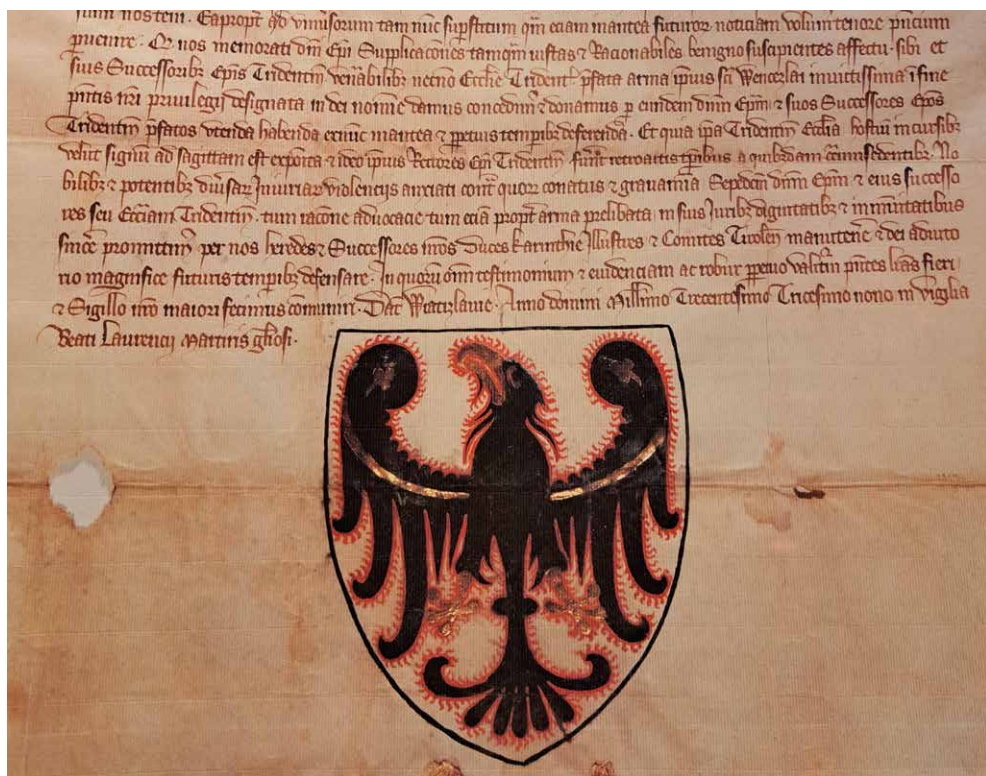 nostri. Eapropt ad vniu̇sorum tam nūc supstitum qm̄ eciam
puenire. nos memorati dm̄ Epī Supplicacōnes tamqm̄ iustas & Racionabiles benigno suscipientes affectu. sibi et
suis Successoribȝ Epīs Tridentin̄ ven̄abilibȝ necnō Eccl̄ie Trident. pfata arma ip̄ius sc̄i Wencezlai inuictissima ī fine
pn̄tis nr̄i priuilegij designata in dei noīe damus concedimꝰ & donamus p eundem dnm̄ Epm̄ & suos Successores Epos
Tridentin̄ pfatos vtenda habenda exnūc & ppetuis tempibȝ deferenda. Et quia ip̄a Tridentin̄ Eccl̄ia hostiū incursibȝ
velut signū ad sagittam est exposita & ideo ip̄ius Rectores Epī Tridentin̄ retroactis tpibus a quibȝdam No
bilibȝ & potentibȝ diu̇sar Iniuriar violencijs anxiati cont̄ quor conatus & grauamīa dnm̄ Epm̄ & eius successo
res seu Eccl̄iam Tridentin̄. tum racōne aduocacie tum eciā propt̄ arma prelibata in suis Iuribȝ dignitatibȝ & inmunitatibus
promittimꝰ per nos heredes & Successores nr̄os Duces Karinthie Illustres & Comites Tirolen̄ manuten̄e & dei adiuto
rio magnifice futuris tempibȝ defensare. In quorū om̄ testimonium & euidenciam ac robur ppetuo pn̄tes lr̄as fieri
& Sigillo nr̄o maiori fecimus cōmuniri. Dat̄ Wratizlauie. Anno domini Mill̄imo Trecentesimo Tricesimo nono in vigilia
Beati Laurencij Martiris gl̄iosi.